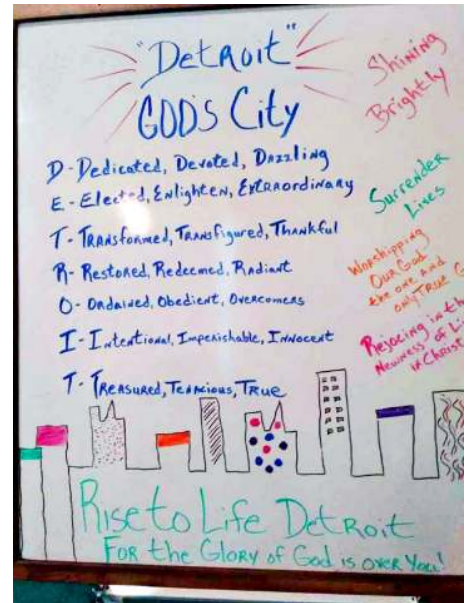 "Detroit"
GOD'S City
D - Dedicated, Devoted, Dazzling
E - Elected, Enlighten, Extraordinary
T - Transformed, Transfigured, Thankful
R - Restored, Redeemed, Radiant
O - Ordained, Obedient, Overcomers
I - Intentional, Imperishable, Innocent
T - Treasured, Tenacious, True
Shining
Brightly
Surrender
Lives
Worshipping
Our God
the one and
only True
Rejocing in
Newness of
in Christ
Rise to Life Detroit
For the Glory of God is over You!